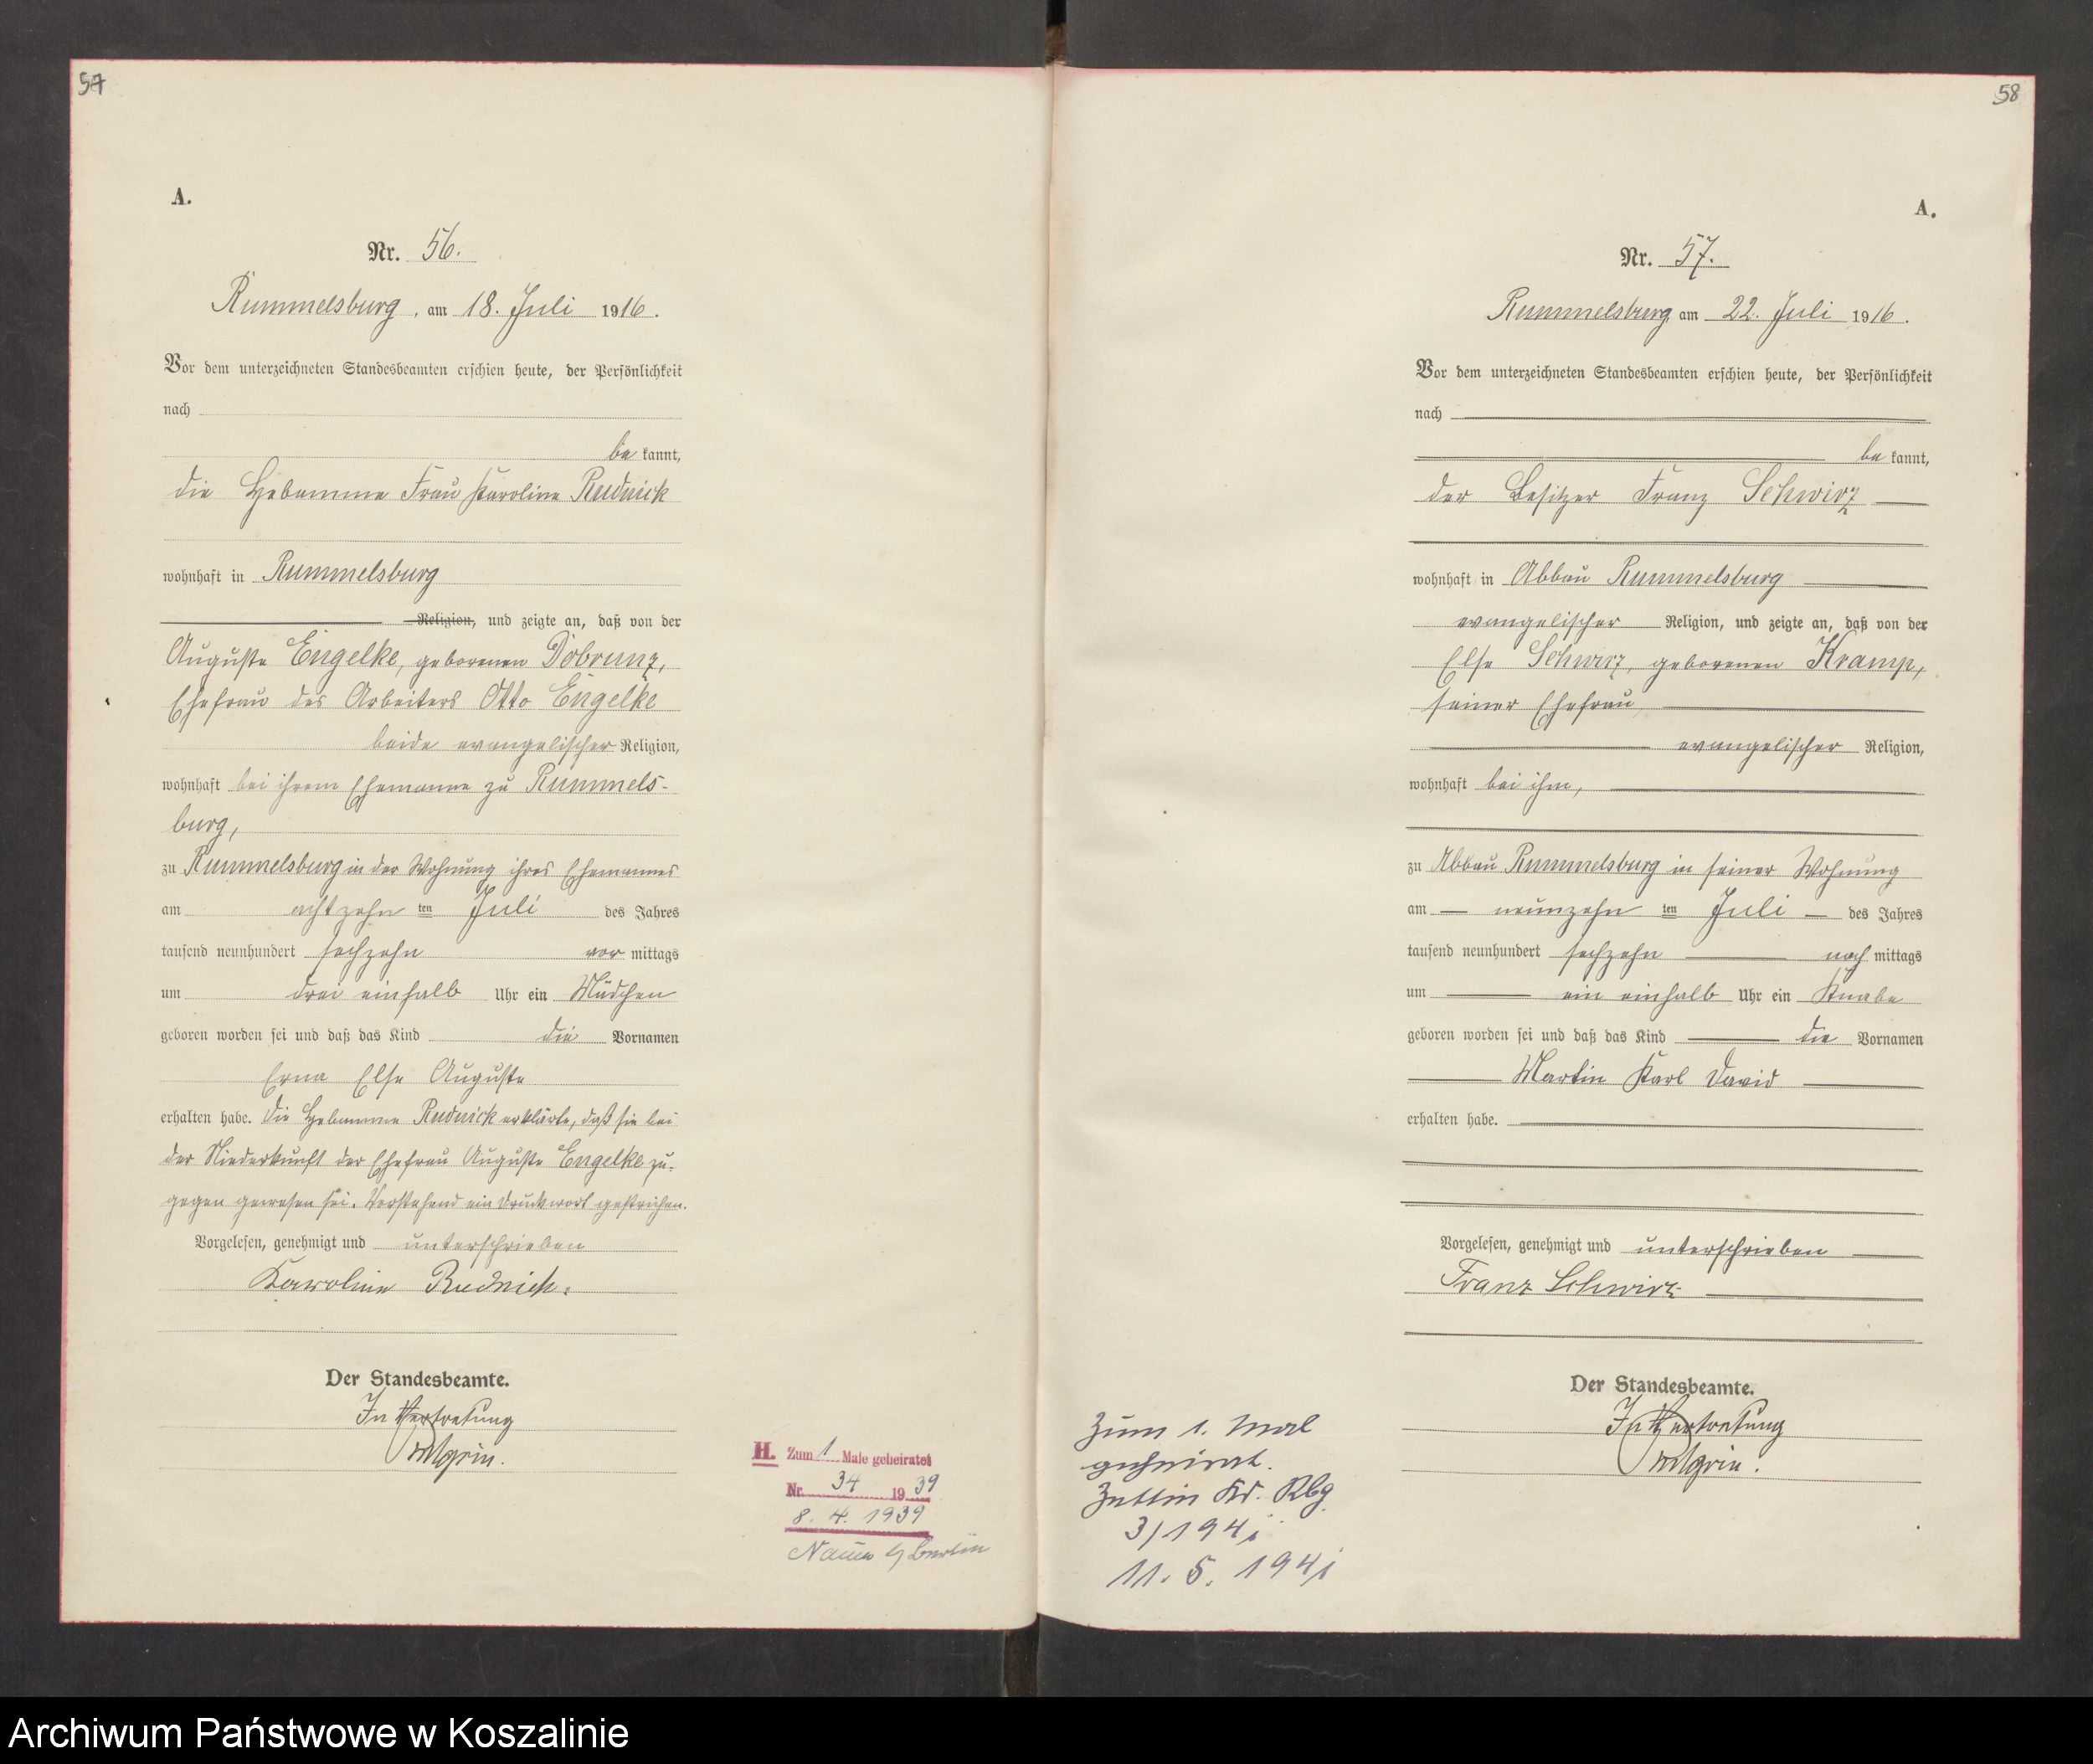 57
A.
Nr. 56.
Rummelsburg, am 18. Juli 1916.
Vor dem unterzeichneten Standesbeamten erschien heute, der Persönlichkeit
nach
be kannt,
die Hebamme Frau Karoline Rudnick
wohnhaft in Rummelsburg
Religion, und zeigte an, daß von der
Auguste Engelke, geborenen Döbrunz,
Ehefrau des Arbeiters Otto Engelke
beide evangelischer Religion,
wohnhaft bei ihrem Ehemanne zu Rummels-
burg,
zu Rummelsburg in der Wohnung ihres Ehemannes
am achtzehn ten Juli des Jahres
tausend neunhundert sechzehn vor mittags
um drei einhalb Uhr ein Mädchen
geboren worden sei und daß das Kind die Vornamen
Erna Else Auguste
erhalten habe. Die Hebamme Rudnick erklärte, daß sie bei
der Niederkunft der Ehefrau Auguste Engelke zu-
gegen gewesen sei. Vorstehend ein Druckwort gestrichen.
Vorgelesen, genehmigt und unterschrieben
Karoline Rudnick.
Der Standesbeamte.
In Vertretung
H. Zum 1 Male geheiratet
Nr. 34 1939
8. 4. 1939
Berlin
58
A.
Nr. 57.
Rummelsburg am 22. Juli 1916.
Vor dem unterzeichneten Standesbeamten erschien heute, der Persönlichkeit
nach
be kannt,
der Besitzer Franz Schwirz
wohnhaft in Abbau Rummelsburg
evangelischer Religion, und zeigte an, daß von der
Else Schwirz, geborenen Kramp,
seiner Ehefrau,
evangelischer Religion,
wohnhaft bei ihm,
zu Abbau Rummelsburg in seiner Wohnung
am neunzehn ten Juli des Jahres
tausend neunhundert sechzehn nach mittags
um ein einhalb Uhr ein Knabe
geboren worden sei und daß das Kind die Vornamen
Martin Karl David
erhalten habe.
Vorgelesen, genehmigt und unterschrieben
Franz Schwirz
Der Standesbeamte.
In Vertretung
Zum 1. Mal
geheirat.
Zettin Kr. Rbg
3/1941
11. 5. 1941
Archiwum Państwowe w Koszalinie